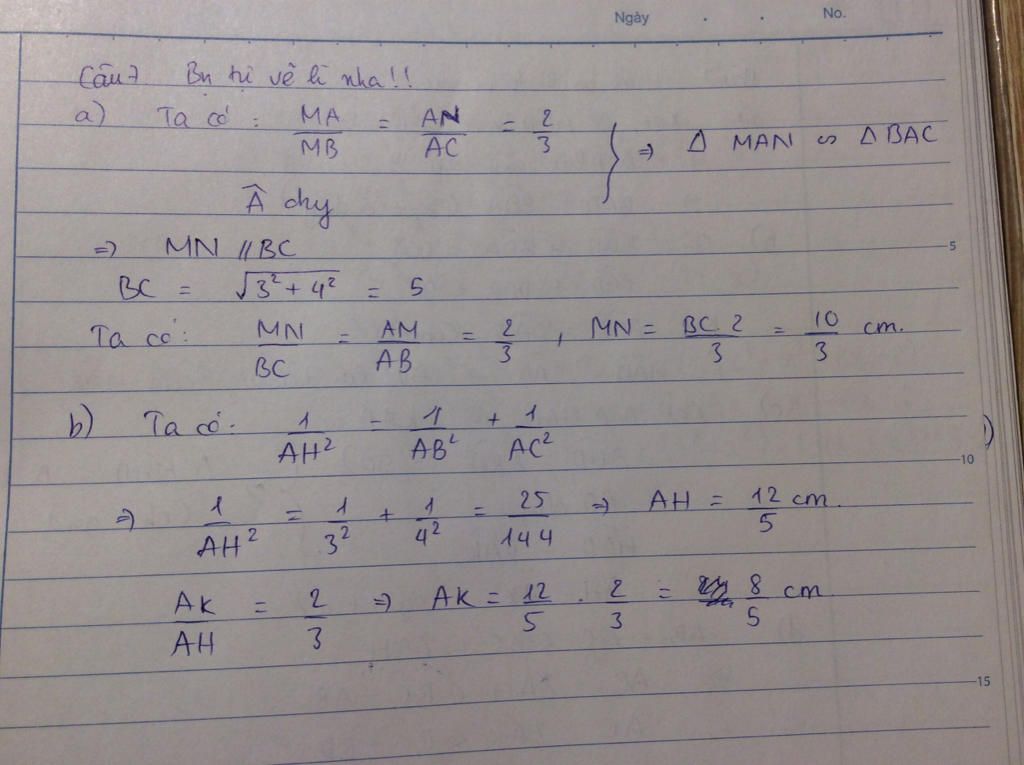 Ngày . . No.
Câu 7 Bn tự vẽ hì nha!!
a) Ta có : MA/MB = AN/AC = 2/3 } ⇒ Δ MAN ∽ Δ BAC
Â chg
⇒ MN // BC
5
BC = √(3² + 4²) = 5
Ta có: MN/BC = AM/AB = 2/3 , MN = BC.2/3 = 10/3 cm.
b) Ta có: 1/AH² = 1/AB² + 1/AC²
10
⇒ 1/AH² = 1/3² + 1/4² = 25/144 ⇒ AH = 12/5 cm.
AK/AH = 2/3 ⇒ AK = 12/5 . 2/3 = 8/5 cm
15